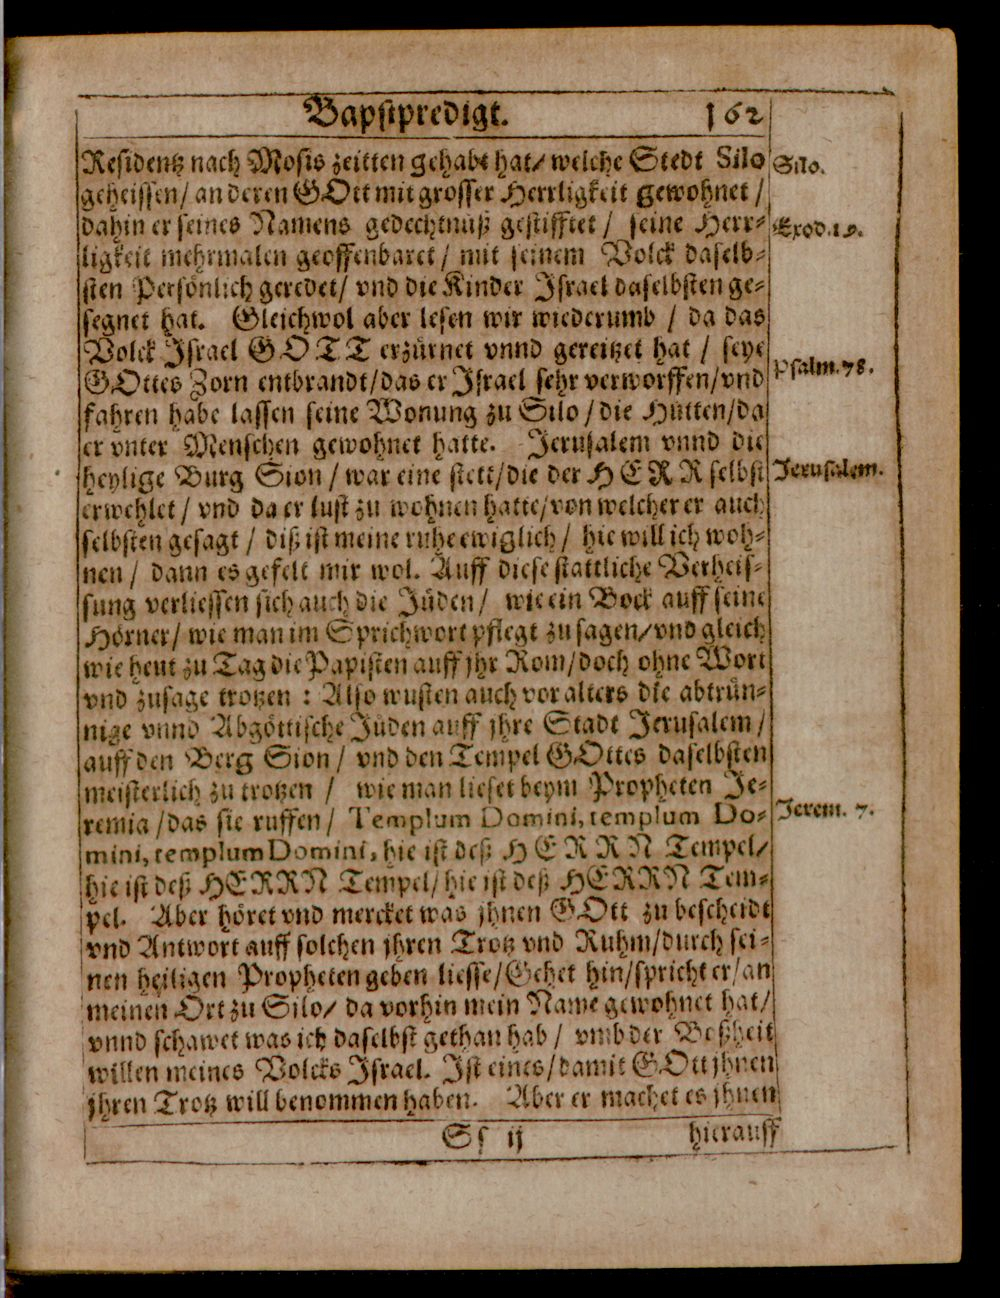 Bapstpredigt. 162
Residentz nach Mosis zeitten gehabt hat/ welche Stedt Silo
Silo.
geheissen/ an deren GOtt mit grosser Herrligkeit gewohnet /
dahin er seines Namens gedechtnuß gestifftet / seine Herr-
Exod.19.
ligkeit mehrmalen geoffenbaret / mit seinem Volck daselb-
sten Persönlich geredet/ vnd die Kinder Israel daselbsten ge-
segnet hat. Gleichwol aber lesen wir wiederumb / da das
Volck Israel GOTT erzürnet vnnd gereitzet hat / seye
Psalm.78.
GOttes Zorn entbrandt/das er Israel sehr verworffen/vnd
fahren habe lassen seine Wonung zu Silo /die Hütten/da
er vnter Menschen gewohnet hatte. Jerusalem vnnd die
heylige Burg Sion / war eine stett/die der HERR selbst
Jerusalem.
erwehlet / vnd da er lust zu wohnen hatte/von welcher er auch
selbsten gesagt / diß ist meine ruhe ewiglich / hie will ich woh-
nen / dann es gefelt mir wol. Auff diese stattliche Verheis-
sung verliessen sich auch die Jüden / wie ein Bock auff seine
Hörner/ wie man im Sprichwort pflegt zu sagen/vnd gleich
wie heut zu Tag die Papisten auff jhr Rom/doch ohne Wort
vnd zusage trotzen : Also wusten auch vor alters die abtrün-
nige vnnd Abgöttische Jüden auff jhre Stadt Jerusalem /
auff den Berg Sion / vnd den Tempel GOttes daselbsten
meisterlich zu trotzen / wie man lieset beym Propheten Je-
Jerem. 7.
remia /das sie ruffen / Templum Domini, templum Do-
mini, templum Domini, hie ist deß HERRN Tempel/
hie ist deß HERRN Tempel/ hie ist deß HERRN Tem-
pel. Aber höret vnd mercket was jhnen GOtt zu bescheidt
vnd Antwort auff solchen jhren Trotz vnd Ruhm/durch sei-
nen heiligen Propheten geben liesse/Gehet hin/spricht er/an
meinen Ort zu Silo/ da vorhin mein Name gewohnet hat/
vnnd schawet was ich daselbst gethan hab / vmb der Boßheit
willen meines Volcks Israel. Ist eines/damit GOtt jhnen
jhren Trotz will benommen haben. Aber er machet es jhnen
Ss ij hierauff